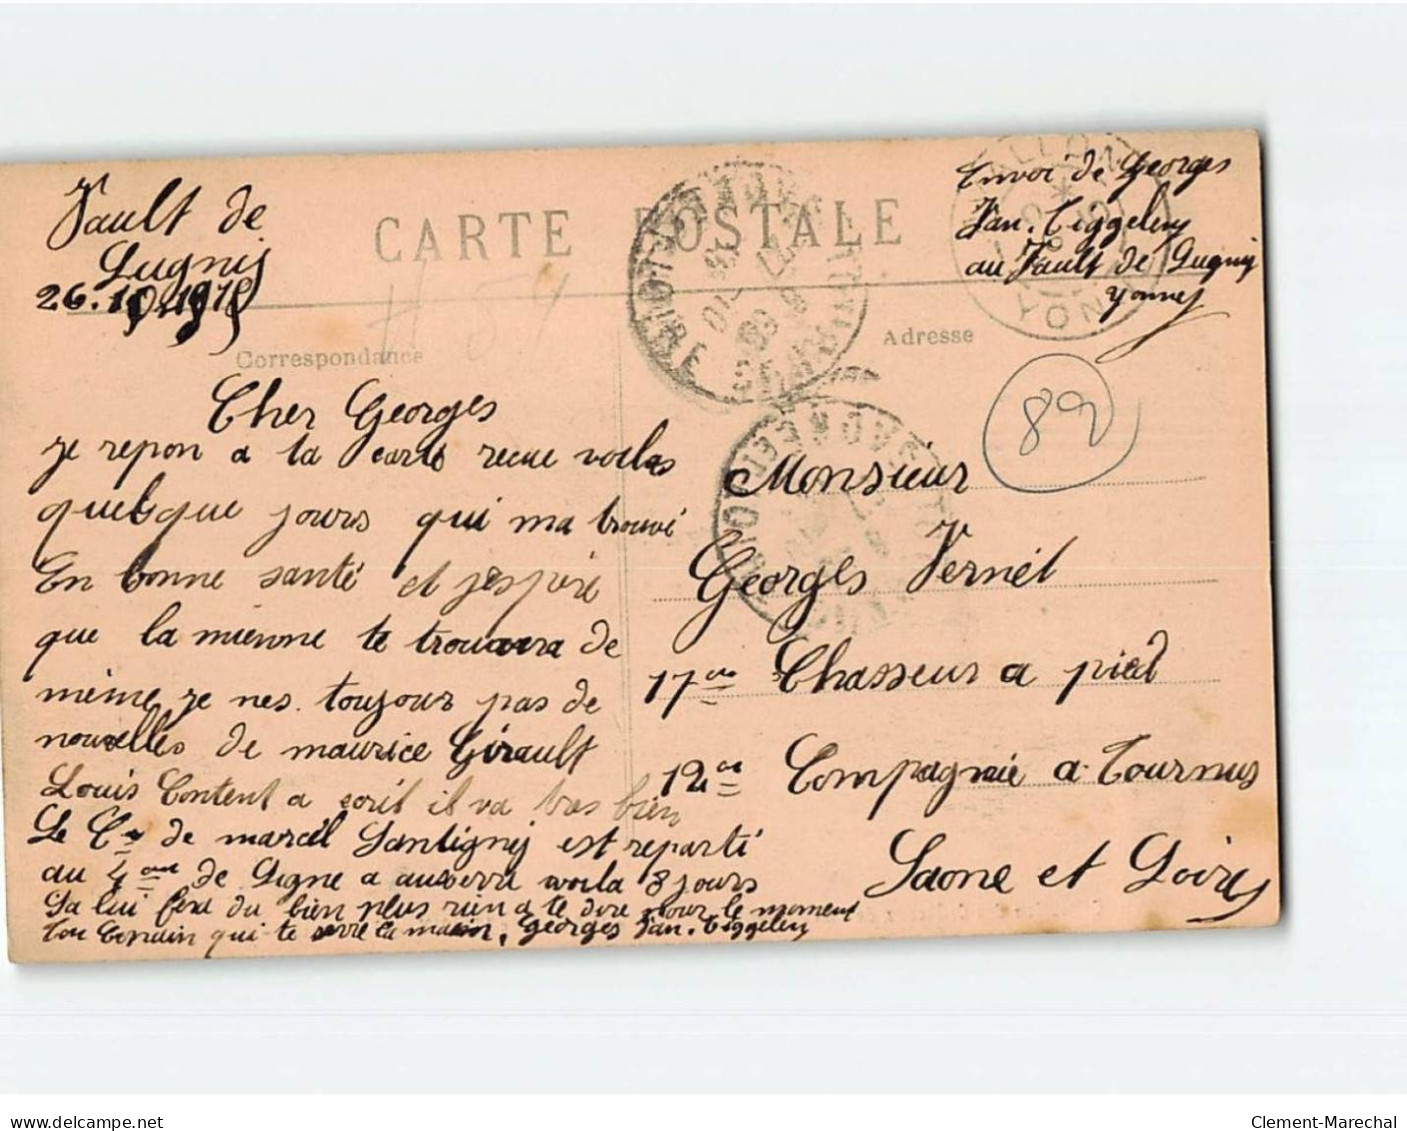 Vault de
Lugny
26.10.1918
CARTE POSTALE
Correspondance
Adresse
Envoi de Georges
Van. Tiggelen
au Vault de Lugny
Yonne
YONNE
89
Cher Georges
je repon a ta carte recue voila
quelque jours qui ma trouvé
En bonne santé et j'espère
que la mienne te trouvera de
même je nes toujour pas de
nouvelles de maurice Girault
Louis Content a ecrit il va tres bien
Le Cy de marcel Santigny est reparti
au 4eme de Ligne a auxerre voila 8 jours
Sa lui fera du bien plus rien a te dire pour le moment
ton Copain qui te serre la main. Georges Van. Tiggelen
Monsieur
Georges Vernet
17eme Chasseur a pied
12eme Compagnie a Tournus
Saone et Loire
Clement-Marechal
www.delcampe.net